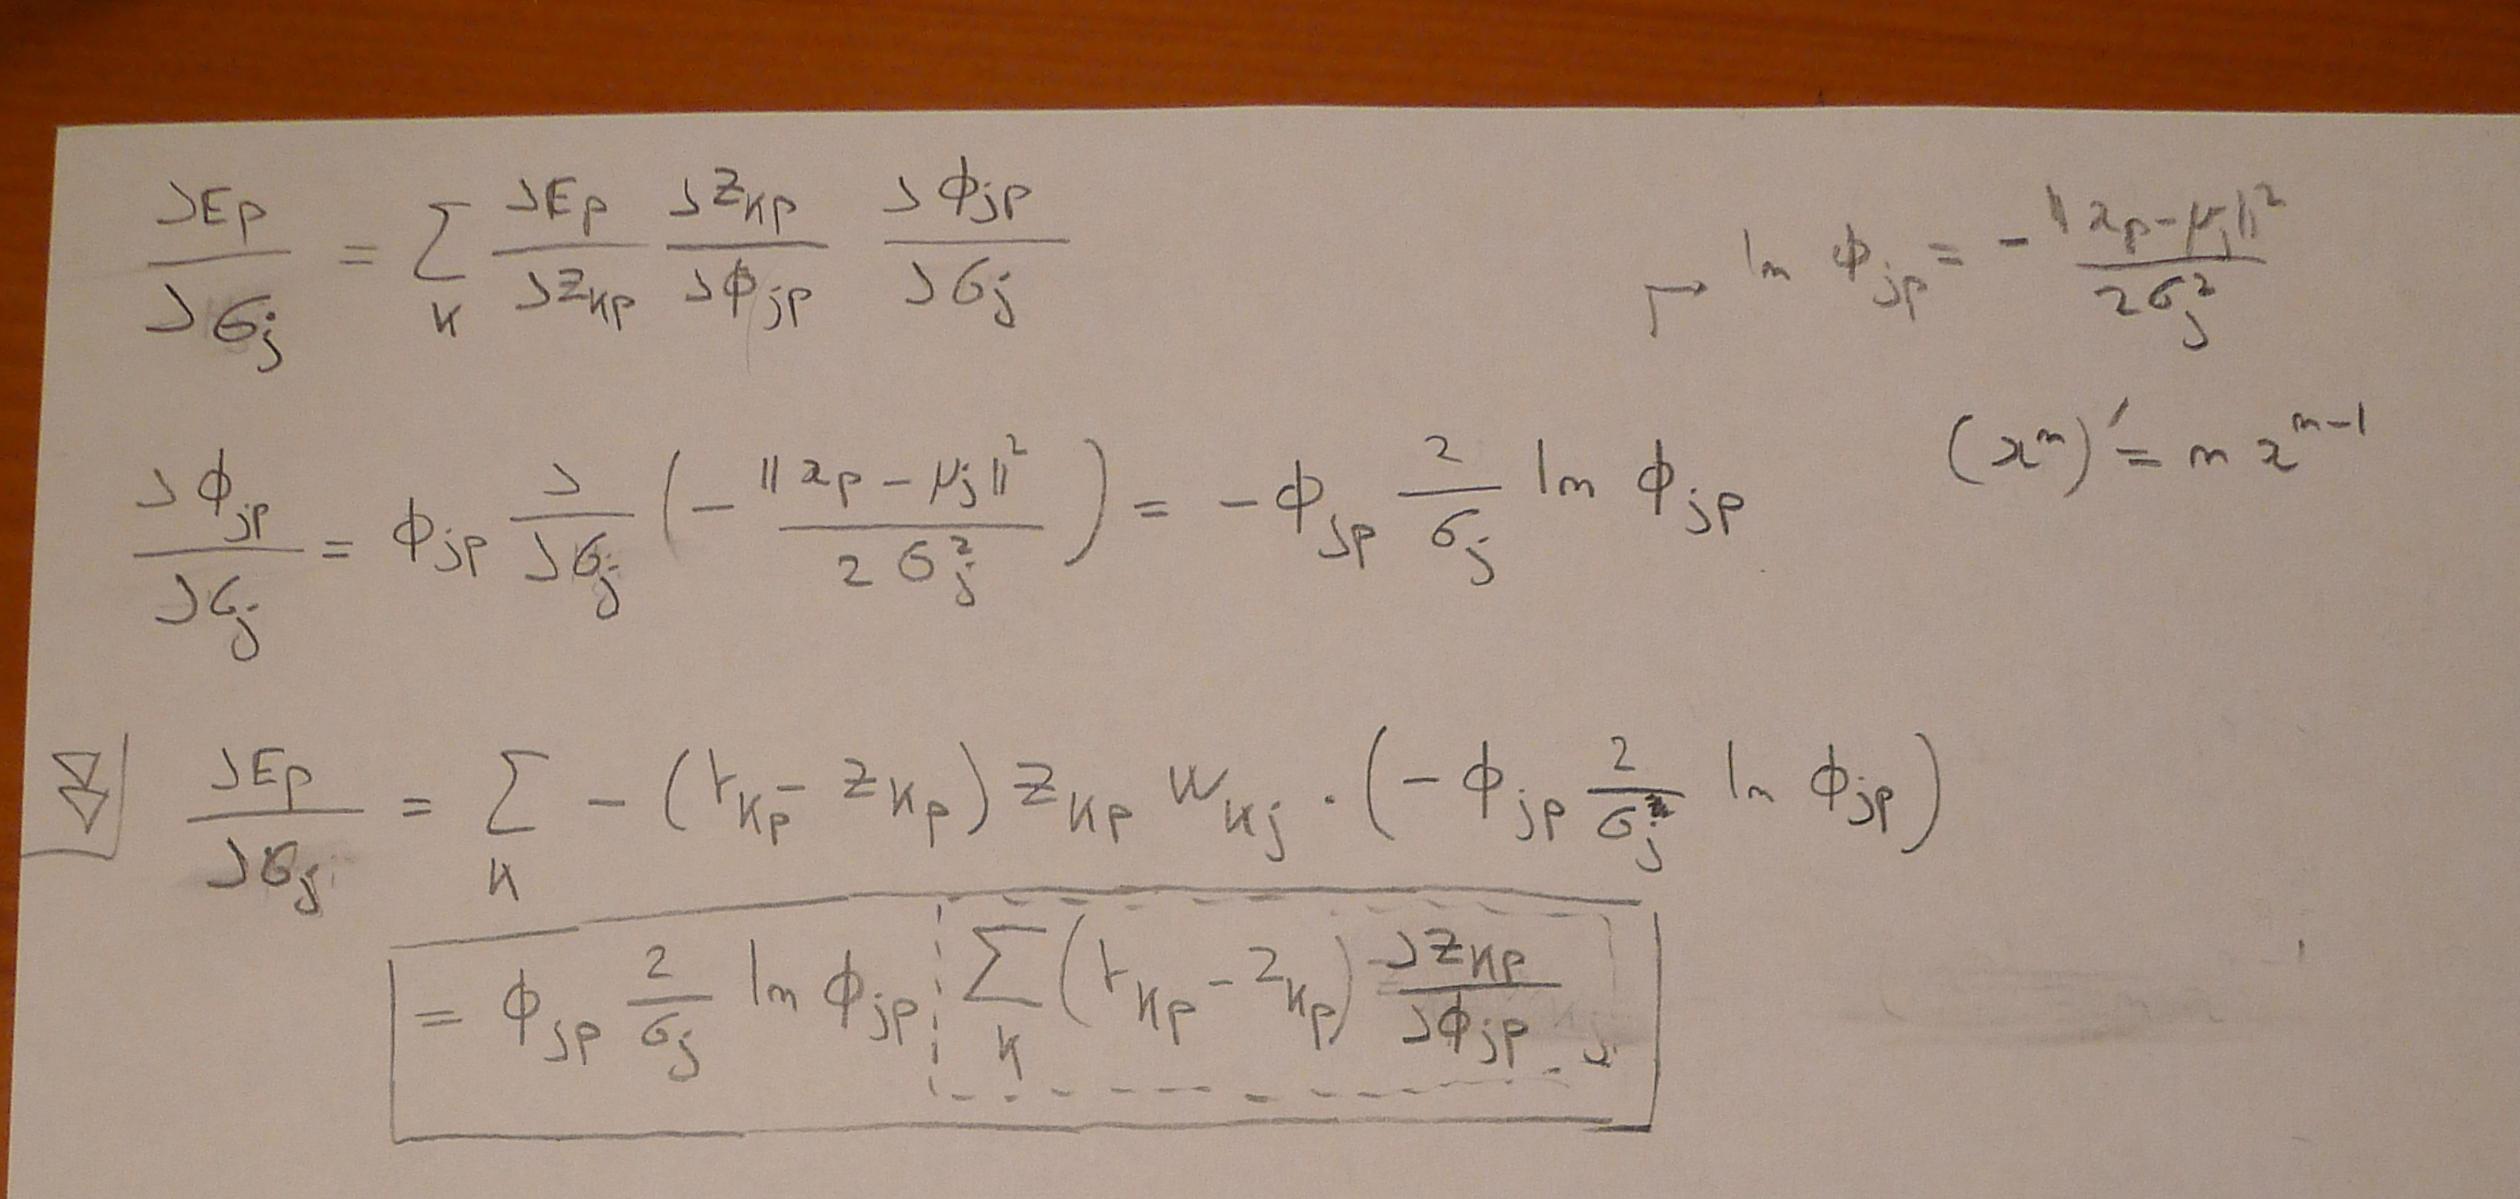 ∂Ep/∂σj = Σ_k ∂Ep/∂z_kp ∂z_kp/∂ϕ_jp ∂ϕ_jp/∂σj
↱ ln ϕ_jp = - ||x_p - μ_j||² / 2σ_j²
∂ϕ_jp/∂σj = ϕ_jp ∂/∂σj ( - ||x_p - μ_j||² / 2σ_j² ) = - ϕ_jp 2/σj ln ϕ_jp
(xⁿ)' = n xⁿ⁻¹
∂Ep/∂σj = Σ_k - (t_kp - z_kp) z_kp w_kj · ( - ϕ_jp 2/σj ln ϕ_jp )
= ϕ_jp 2/σj ln ϕ_jp Σ_k (t_kp - z_kp) ∂z_kp/∂ϕ_jp